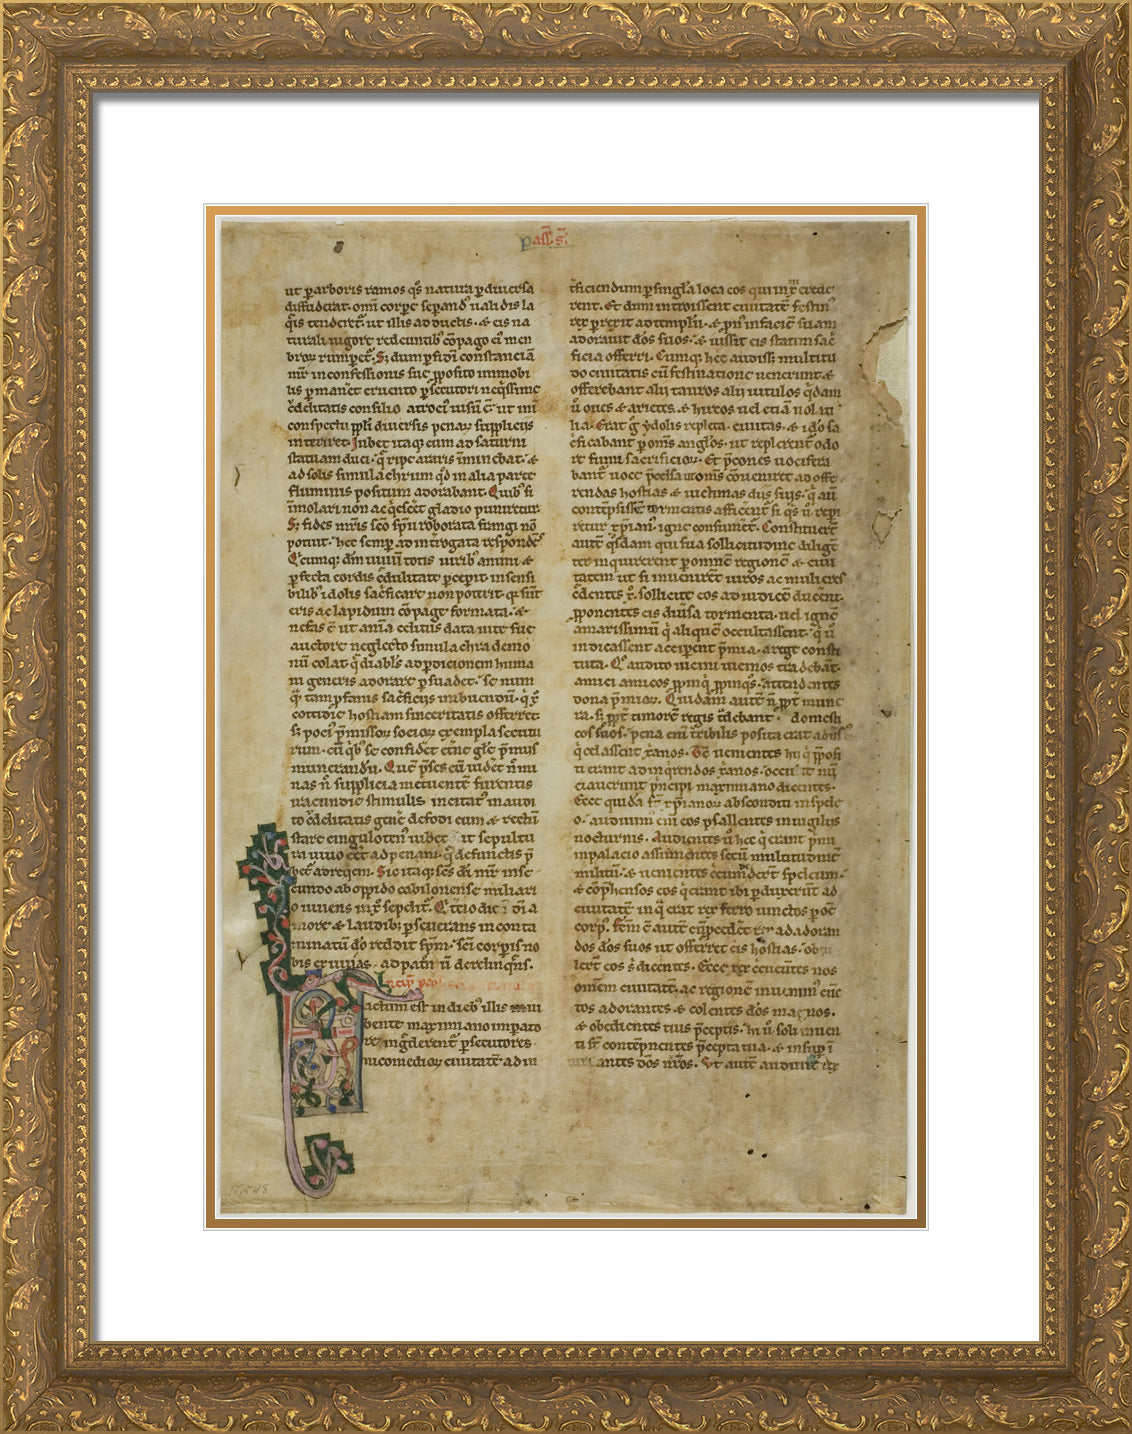 pass. s.
ut p arboris ramos qs natura p diuersa
diffuderat. omi corpe sepand ualidis la
qis tenderet. ut illis adductis. & eis na
turali uigore redeuntib compago ei men
bror rumperet. S; dum pfidi constanciā
mr in confessionis sue pposito inmobi
lis pmanet cruento psecutori neqssime
crudelitatis consilio atroci uisū ē. ut in
conspectu ppli diuersis penar suppliciis
interiret. Jubet itaq; eum ad saturni
statuam duci. q ripe araris iminebat. &
ad solis simulachrum qd in alia parte
fluminis positum adorabant. Quib si
imolari non acqesceret gladio puniretur
S; fides mris sco spu roborata frangi nō
potuit. hec semp ad introgata responder
Cumq; dm uiuū totis uirib animi &
pfecta cordis credulitate pcepit insensi
bilib idolis sacficare non potuit. q sunt
eris ac lapidum cōpage formata. &
nefas ē ut anima celitus data uite sue
auctore neglecto simulachra demo
nū colat. q diabls ad pdicionem huma
ni generis adorare psuadet. Se num
q tam pfanis sacficiis inbuendū. q xo
cotidie hostiam sinceritatis offerret.
si poci pmissor socior exempla sectatu
rum. cū qb se confidet etne gle pmis
munerandū. Que pses cū uidet n mi
nas n supplicia metuente furentis
iracundie stimulis incitat inaudi
to crudelitatis genere defodi eum & rectū
stare cingulo ten iubet ut sepultu
ra uiuo eet ad penam. q defunctis p
bet ad reqem. Sic itaq; scs di mr in se
cundo ab oppido cabilonense miliari
o uiuens in x sepelit. Et tcio die i di a
more & laudib pseuerans in conta
minatū do reddit spm. sci corpis no
bis exuuias. ad patn u derelinqns.
Incip pas
actum est in dieb illis iu
bente maximiano imperato
re ingrederent psecutores
nicomedior ciuitate ad in
tficiendum p singla loca eos qui in xm crede
rent. Et dum introissent ciuitatē festin
rex perrexit ad templū. & pn in faciē suam
adorauit dōs suos. & iussit eis statim sac
ficia offerri. Cumq; hec audisset multitu
do ciuitatis cū festinatione uenerunt &
offerebant alii tauros alii uitulos qdam
u oues & arietes. & hircos uel etiā uolati
lia. Erat g ydolis repleta ciuitas. & ido sa
cficabant p omis anglos. ut repleren t odo
re fumi sacrificior. Et pcones uocifera
bant uoce pcelsa ut omis conueniret ad offe
rendas hostias & uictimas diis suis. q au
contepsisset tormentis afficeret. si qs u repi
retur xpian. igne consumeret. Constituert
aute qsdam qui sua sollicitudine diligt
ter inquirerent p omne regionē & ciui
tatem ut si inuenirēt uiros ac mulieres
cdentes x. sollicite eos ad iudicē ducent.
pponentes eis diuisa tormenta. uel ignē
amarissimū q aliquē occultassent. q u
indicassent acciperent pmia. a rege consti
tuta. Q audito uicini uicinos tradebat.
amici amicos ppinq ppinqs. attendentes
dona pmior. Quidam aute n ppt mune
ra. si ppt timore regis tdebant. domesti
cos suos. pena eni tribilis posita erat adusu
q celassent xanos. Tc uenientes hi q pposi
ti erant ad inqrendos xanos. occu it nū
ciauerunt pncipi maximiano dicentes.
Ecce quida st xpianor absconditi in spele
o. audiuim eni eos psallentes in uigilus
nocturnis. Audientes u hec q erant pmi
in palacio assumentes secū multitudine
militū. & uenientes ccumdert speleum.
& cōphensos eos q erant ibi pduxerūt ad
ciuitatē in q erat rex ferro uinctos p oē
corp. Fcm ē aute cū pcedet rex ad adoran
dos dōs suos ut offerret eis hostias. ob
lert eos s dicentes. Ecce rex ecuentes nos
omem ciuitate. ac regionē inuenim cuc
tos adorantes & colentes dōs magnos.
& obedientes tuis pceptis. hi u soli inuen
ti st contepnentes pcepta tua. & insup i
antes dōs nros. Vt aute audiuit rex